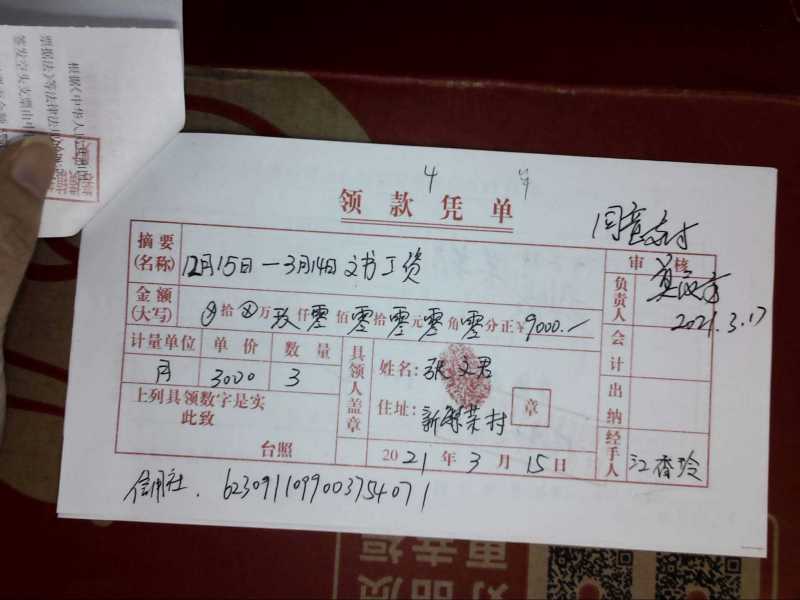 根据《中华人民
票据法》等法律法
签发空头支票由中
4
领款凭单
同意支付
摘要(名称) 12月15日—3月14日文书工资
审核
金额(大写) ⊗拾⊗万玖仟零佰零拾零元零角零分正¥9000.—
负责人
2021.3.17
计量单位 单价 数量
月 3000 3
具领人盖章
姓名:张文君
会计
上列具领数字是实
此致
台照
住址:新 荣村
章
出纳
2021年3月15日
经手人 江香玲
信用社. 6230911099003754071